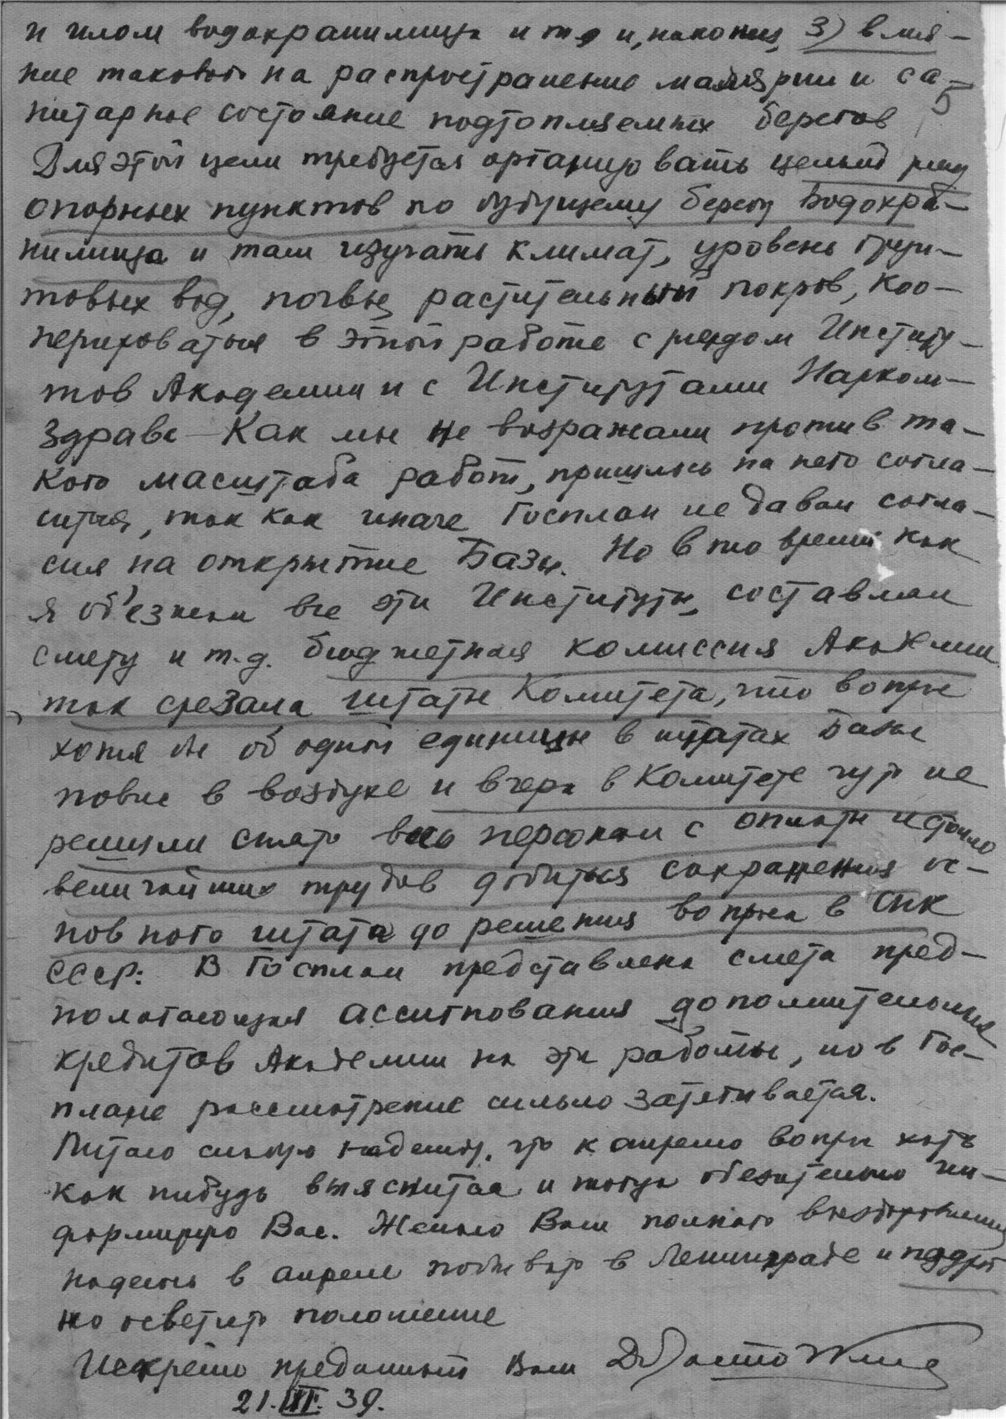 и илом водохранилища и т.д и, наконец, 3) влия-
ние такового на распространение малярии и са-
нитарное состояние подтопляемых берегов
5
Для этой цели требуется организовать целый ряд
опорных пунктов по будущему берегу Водохра-
нилища и там изучать климат, уровень грун-
товых вод, почвы, растительный покров, Коо-
перироваться в этой работе с рядом Институ-
тов Академии и с Институтами Нарком-
здрава – Как мы не возражали против та-
кого масштаба работ, пришлось на него согла-
ситься, так как иначе Госплан не давал согла-
сия на открытие Базы. Но в то время как
я объезжал все эти Институты, составлял
смету и т.д. бюджетная комиссия Академии
так срезала штаты Комитета, что вопрос
хотя бы об одной единице в штатах Базы
повис в воздухе и вчера в Комитете чуть не
решили снять весь персонал с оплаты и стоило
величайших трудов добиться сохранения ос-
новного штата до решения вопроса в СНК
СССР. В Госплан представлена смета пред-
полагающая ассигнования дополнительных
кредитов Академии на эти работы, но в Гос-
плане рассмотрение сильно затягивается.
Питаю слабую надежду, что к апрелю вопрос хоть
как нибудь выяснится и тогда обязательно ин-
формирую Вас. Желаю Вам полного выздоровления
надеюсь в апреле побывать в Ленинграде и подроб
но осветить положение
Искренно преданный Вам
21.III.39.